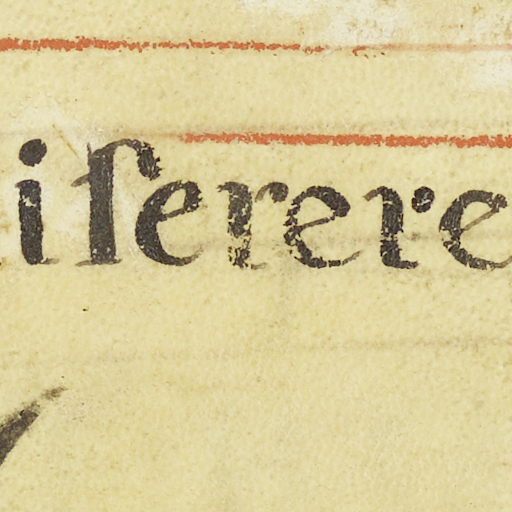 iſerere